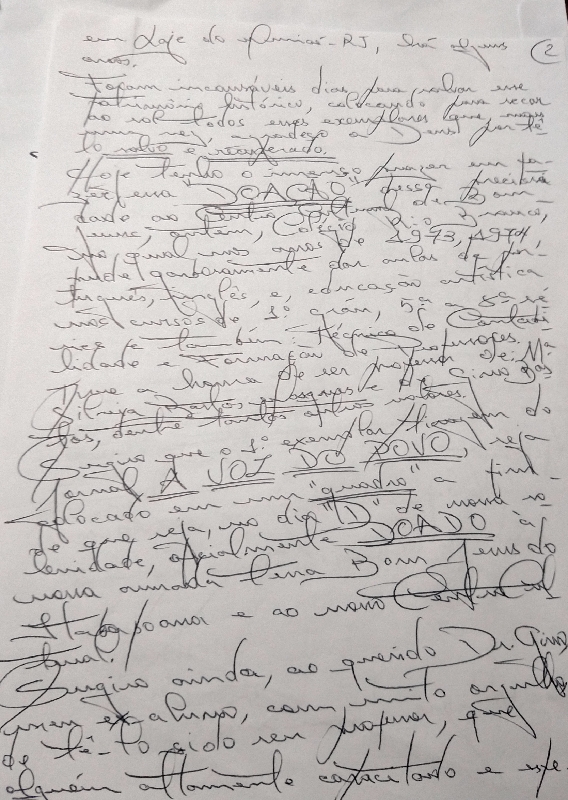 em Laje do Muriaé-RJ, há alguns
anos. 2
Foram incansáveis dias para salvar esse
patrimônio histórico, colocando para secar
ao sol todos esses exemplares que, mais
uma vez, agradeço a Deus por tê-
lo salvo e recuperado.
Hoje tenho o imenso prazer em fa-
zer essa "DOAÇÃO" dessa
ao Centro Cultural de Bom
Jesus, ontem, Colégio Rio Branco,
no qual nos anos de 1973, 1974,
pude dar aulas de por-
tuguês, inglês, e, educação artística
nos cursos de 1º grau, 5ª a 8ª sé-
ries e também: Técnico de Contabi-
lidade e Formação de Professores.
Tive a honra de ser professor de: Mª
Silveja e de Gino Bas
tos, dentre tantos outros valores.
Sugiro que o 1º exemplar do
Jornal A VOZ DO POVO, seja
colocado em um "quadro" a fim
de que seja, no dia "D" de nossa so-
lenidade, oficialmente DOADO à
nossa amada terra Bom Jesus do
Itabapoana e ao nosso Centro Cul
tural.
Sugiro ainda, ao querido Dr. Gino,
meu ex-aluno, com muito orgulho
de tê-lo sido seu professor, que
alguém altamente capacitado e espe-